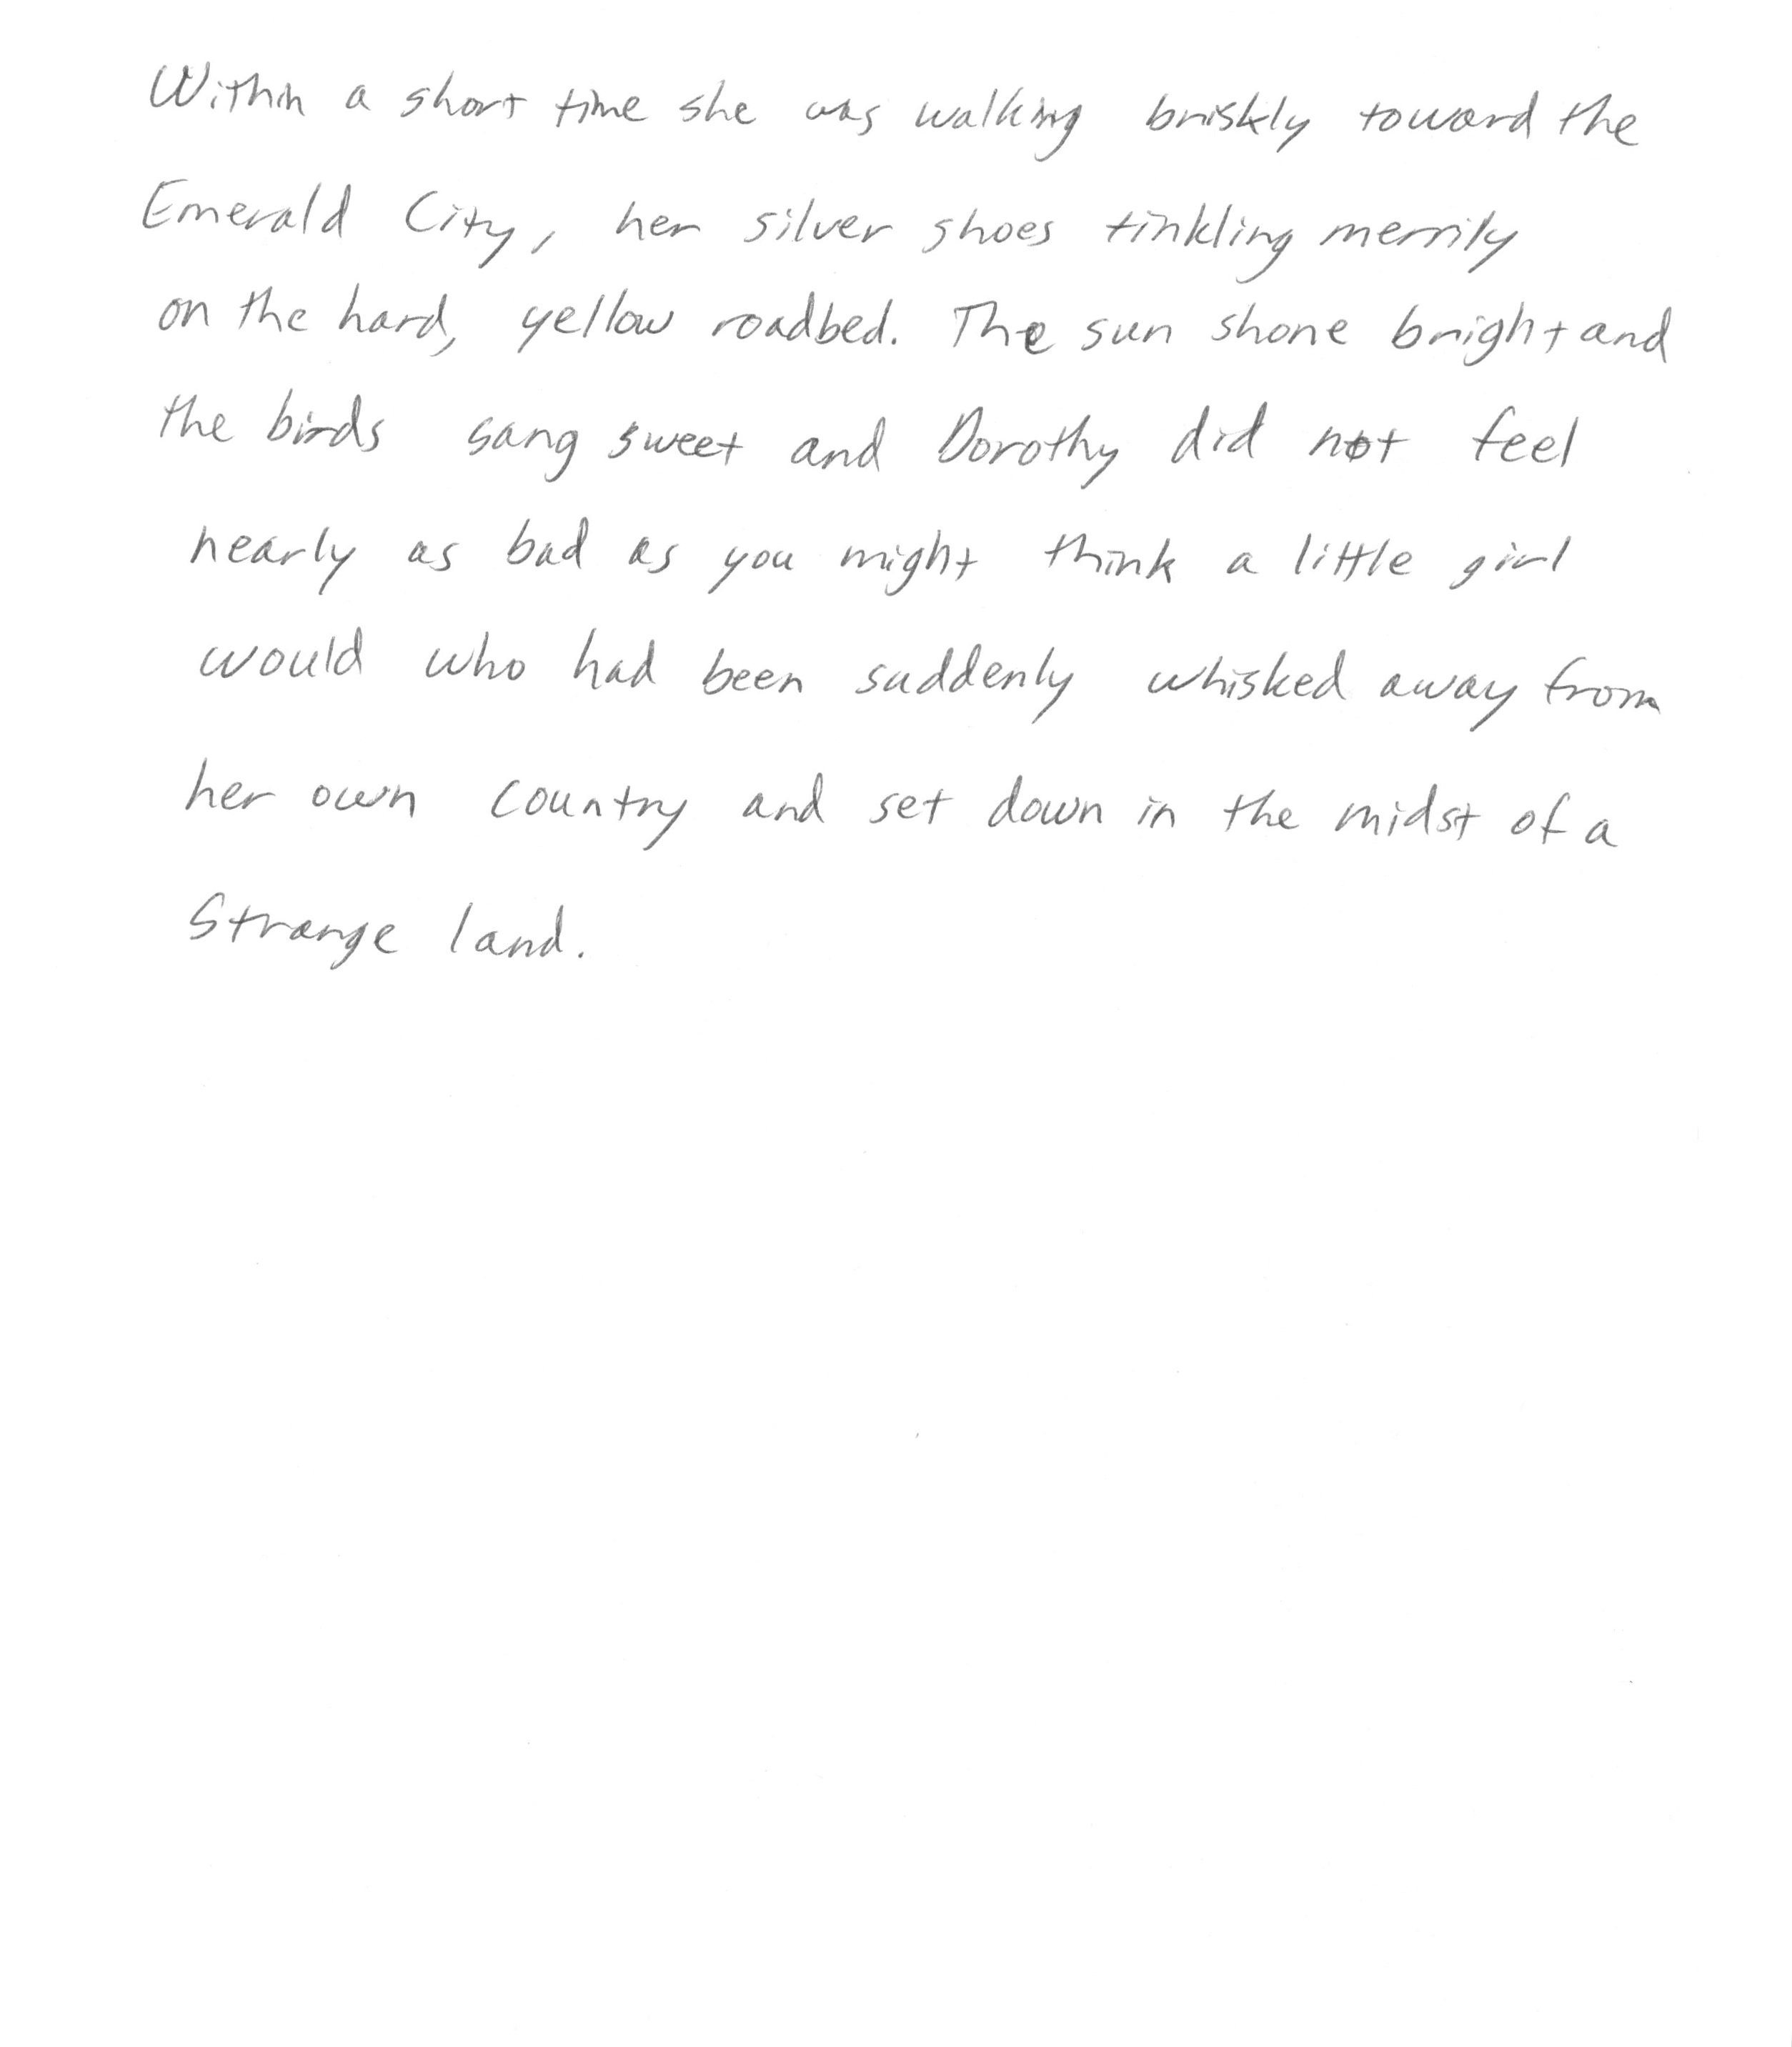 Within a short time she was walking briskly toward the
Emerald City, her silver shoes tinkling merrily
on the hard, yellow roadbed. The sun shone bright and
the birds sang sweet and Dorothy did not feel
nearly as bad as you might think a little girl
would who had been suddenly whisked away from
her own country and set down in the midst of a
Strange land.